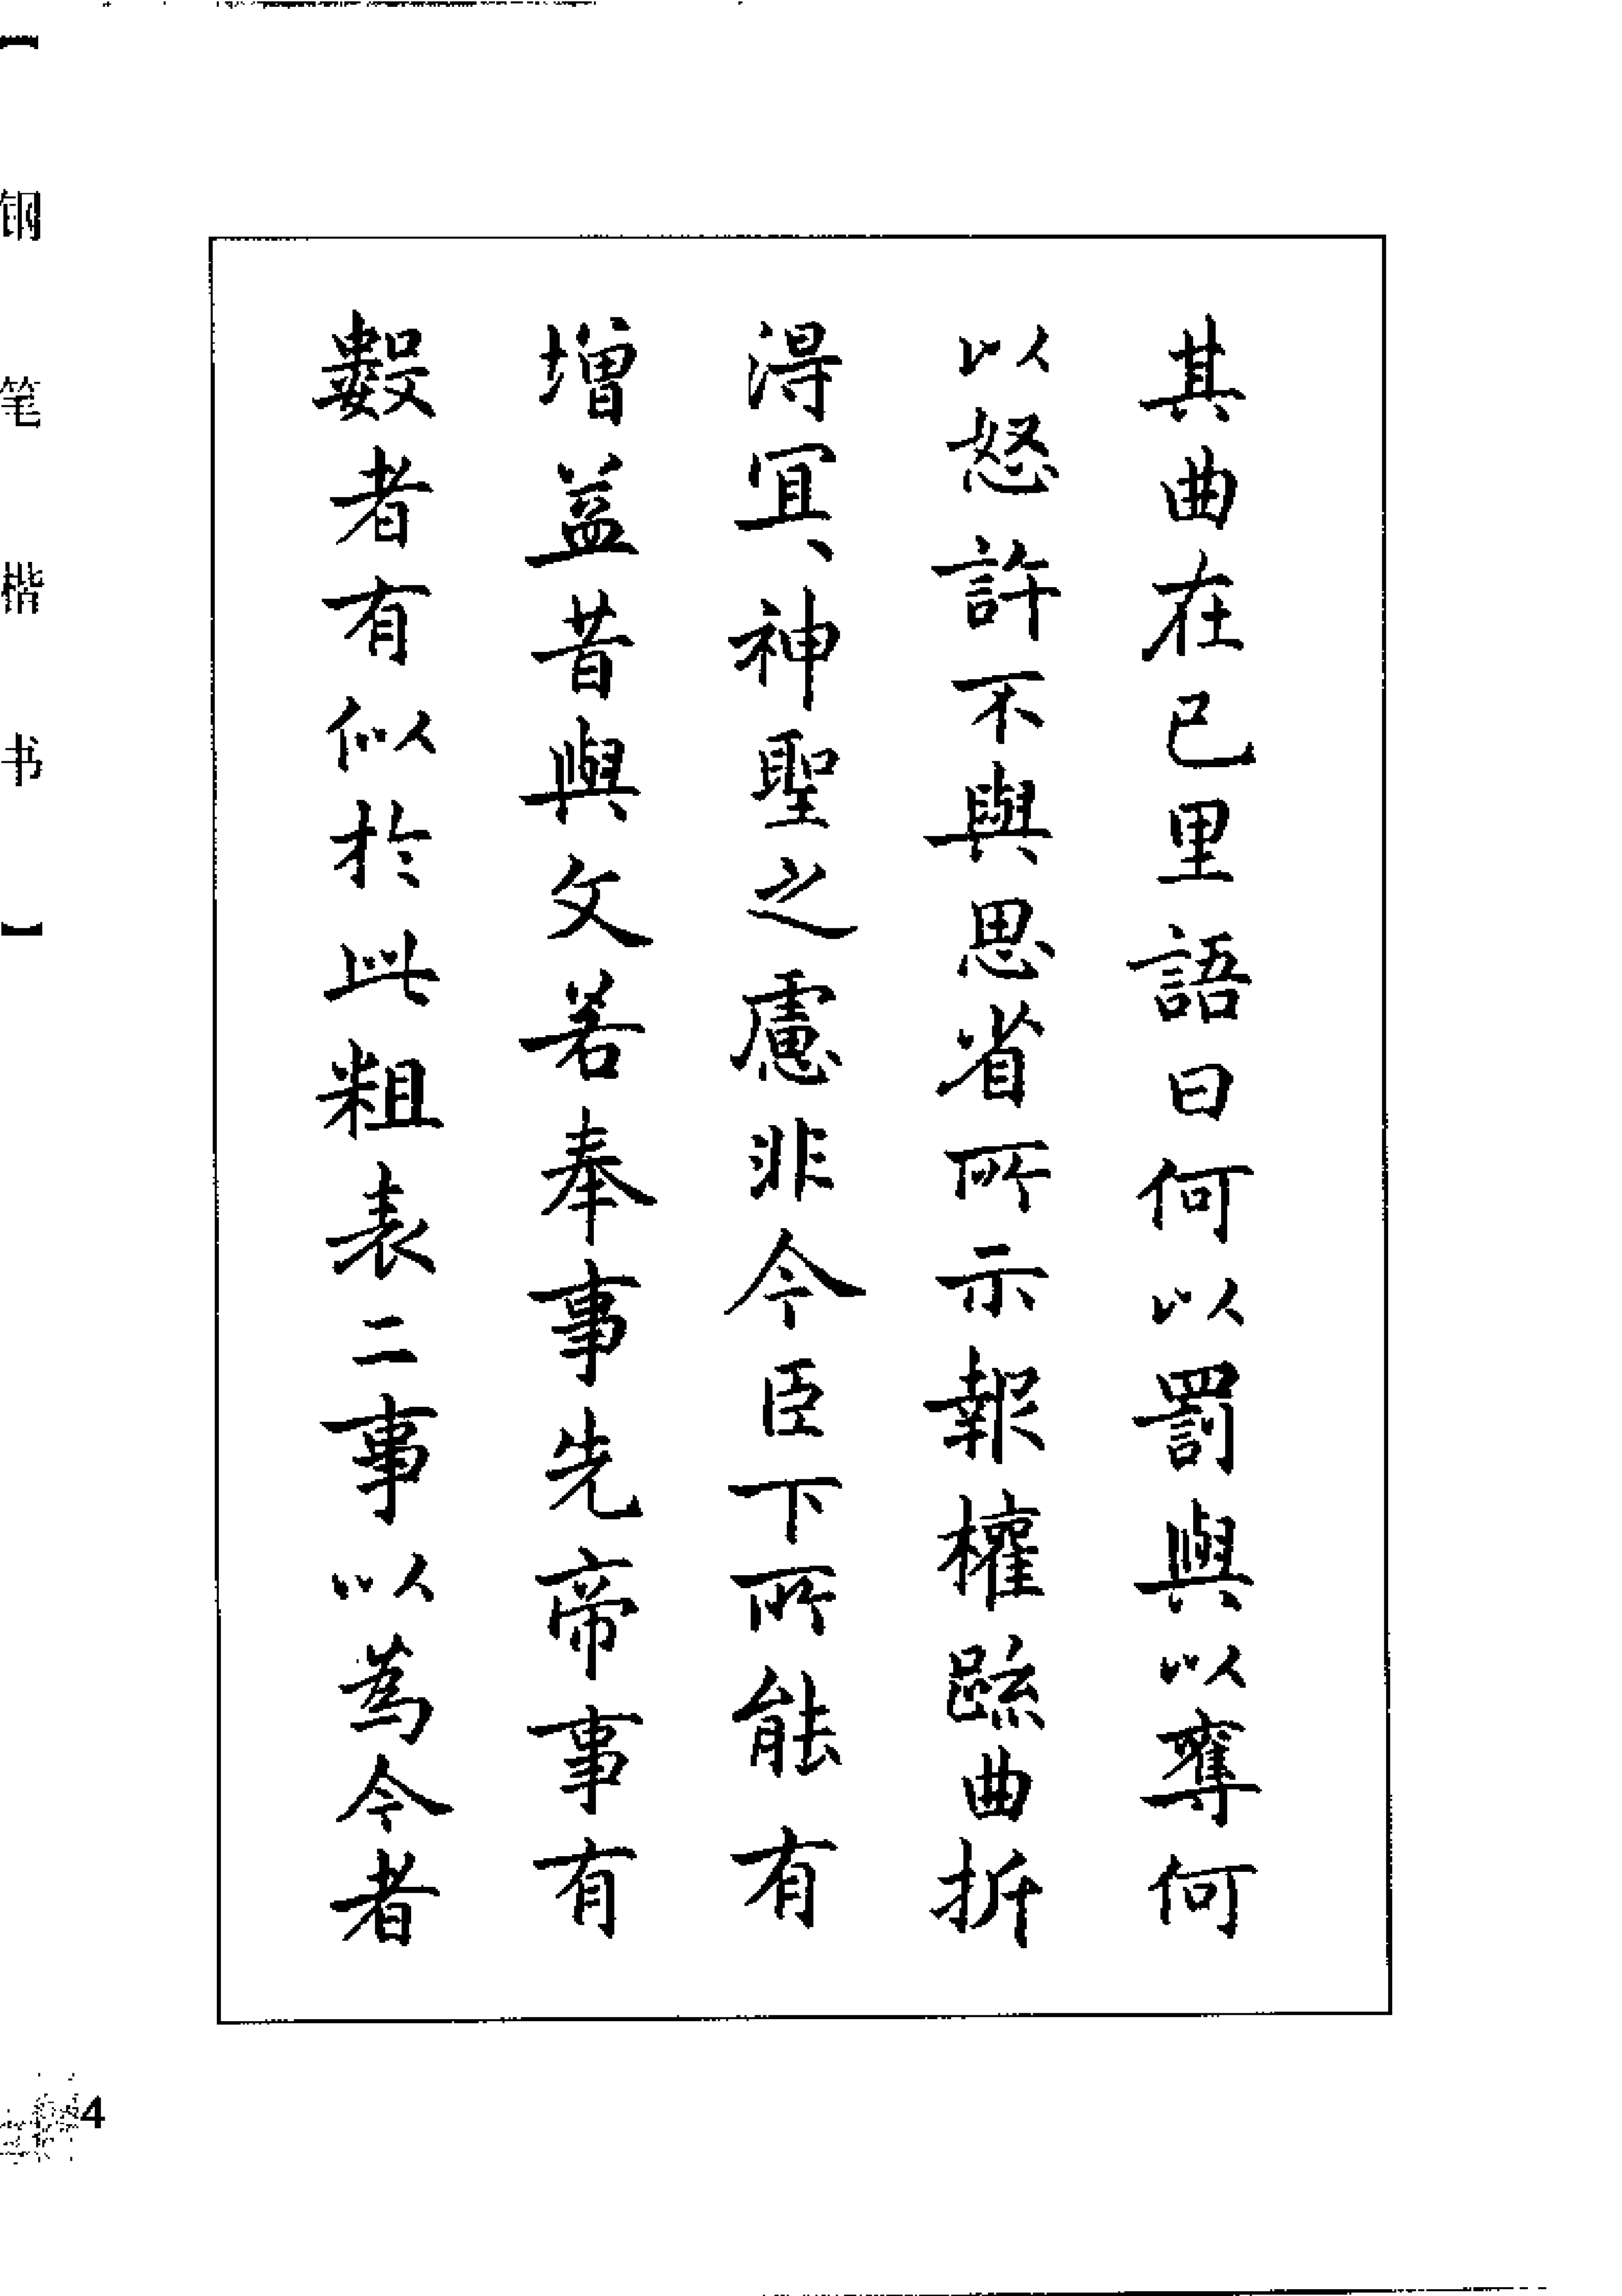 其曲在己里語曰何以罰與以奪何
以怒許不與思省所示報權疏曲折
得冝神聖之慮非今臣下所能有
增益昔與文若奉事先帝事有
數者有似於此粗表二事以為今者
【钢笔楷书】
4